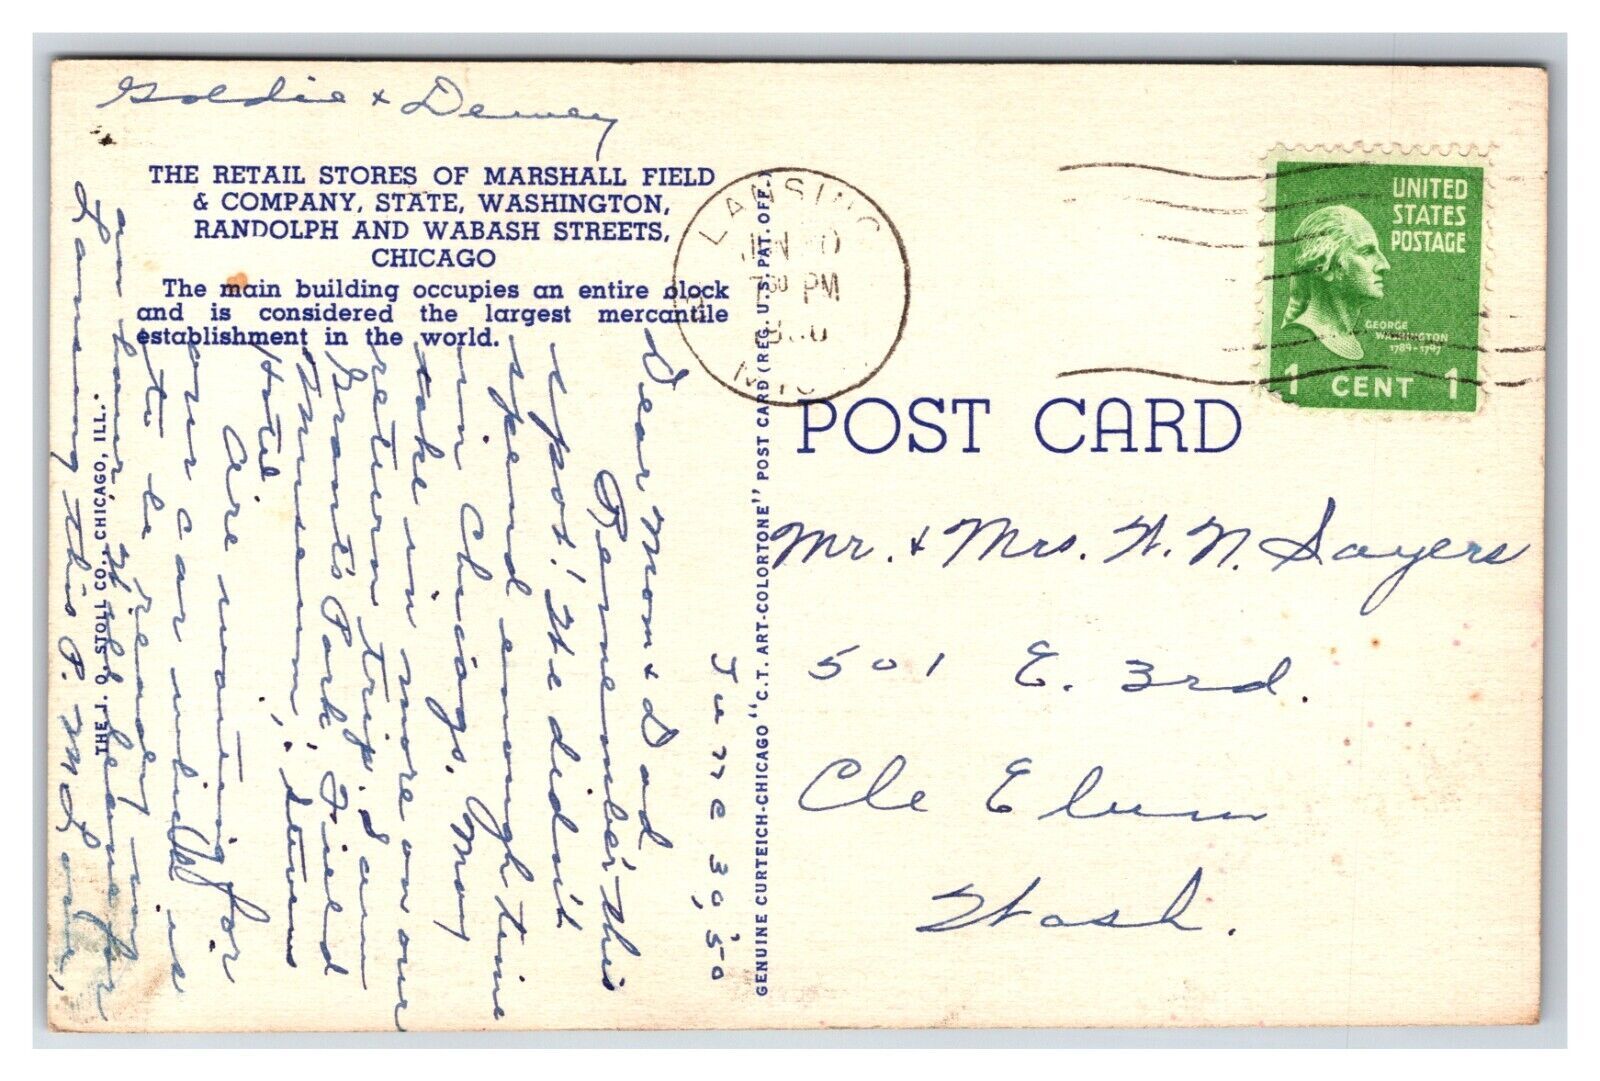 Goldie & Dewey
THE RETAIL STORES OF MARSHALL FIELD
& COMPANY, STATE, WASHINGTON,
RANDOLPH AND WABASH STREETS,
CHICAGO
The main building occupies an entire block
and is considered the largest mercantile
establishment in the world.
June 30, '50
Dear Mom & Dad
Remember this
spot! We didn't
spend enough time
in Chicago. May
take in more on our
return trip. I am
Grant's Park, Field
Museum, Stevens
Hotel
Are waiting for
our car which is
to be ready in
an hour. Will leave for
Lansing this P.M. Love,
THE J. O. STOLL CO., CHICAGO, ILL.
GENUINE CURTEICH-CHICAGO "C.T. ART-COLORTONE" POST CARD (REG. U.S. PAT. OFF.)
LANSING
7 30 PM
UNITED
STATES
POSTAGE
GEORGE
WASHINGTON
1789-1797
1 CENT 1
POST CARD
Mr. & Mrs. W. N. Sayers
501 E. 3rd.
Cle Elum
Wash.